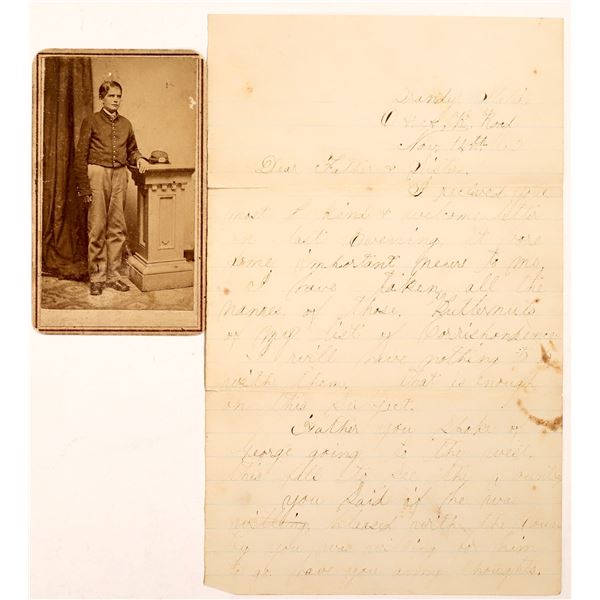 Nov 14th 63
Dear Father & Sister.
I recived your
most kind & welcome letter
on last Evening it
some important to me,
I have taken all the
names of those Butternuts
of my list of Corrispondence
I will have nothing to
with them. that is enough
on this subject.
Father you Spoke of
George going to the west
this fall to see the country
you Said if he was
pleased with the coun
try you was willing for him
to go have you any thoughts.